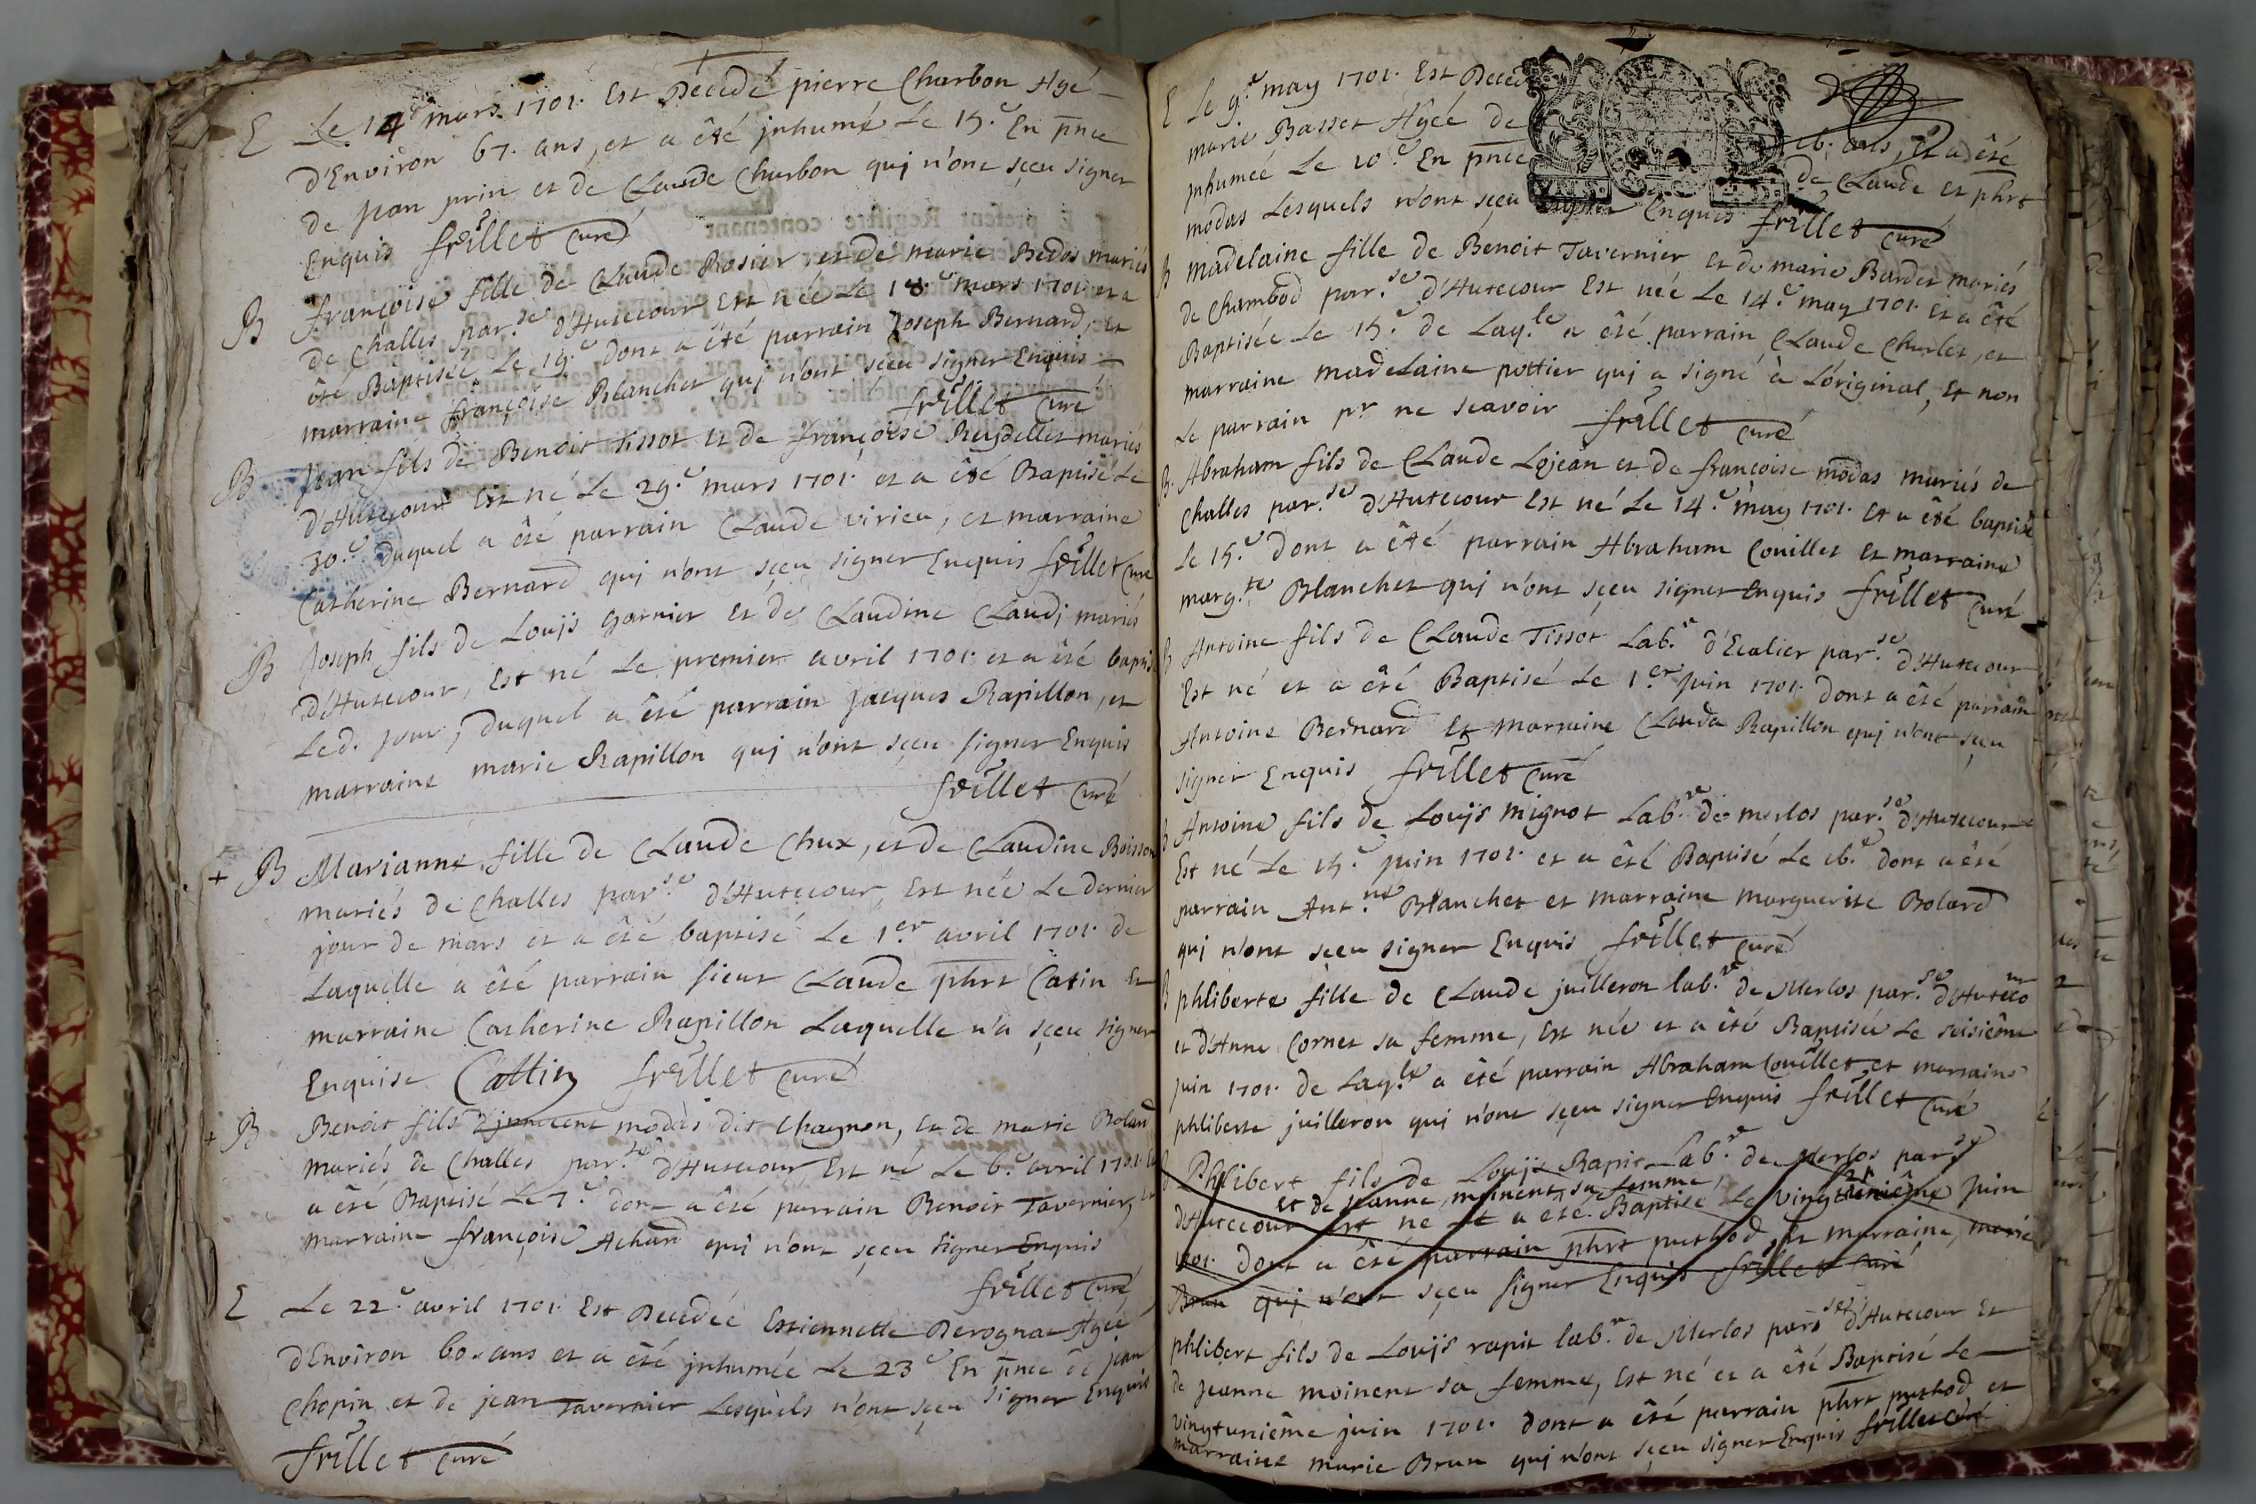 E Le 14e mars 1701. Est Decedé pierre Charbon Agé
d'Environ 67. ans, et a êté jnhumé Le 15.e En pnce
de jean prin et de Claude Charbon quj n'ont sçeu signer
Enquis frillet Curé
B françoise fille de Claude Rosier, et de marie Bedos mariés
de Challes par.se d'Hutecour Est née Le 18.e mars 1701. et a
êté Baptisée Le 19.e dont a êté parrain Joseph Bernard, et
marraine françoise Blanchet quj n'ont sçeu signer Enquis
frillet Curé
B Jean fils de Benoit Tissot et de françoise Reydellet mariés
d'Hutecour Est né Le 29.e mars 1701. et a êté Baptisé Le
30.e duquel a êté parrain Claude virieu, et marraine
Catherine Bernard quj n'ont sçeu signer Enquis frillet Curé
B Joseph fils de Loujs garnier et de Claudine Claudj mariés
d'Hutecour, Est né Le premier avril 1701. et a êté baptisé
Led. jour, duquel a êté parrain jacques Rapillon, et
marraine marie Rapillon quj n'ont sçeu signer Enquis
frillet Curé
+ B Marianne fille de Claude Chux, et de Claudine Boisson
mariés de Challes par.se d'Hutecour, Est née Le dernier
jour de mars et a êté baptisé Le 1.er avril 1701. de
Laquelle a êté parrain sieur Claude phrt Catin Et
marraine Catherine Rapillon Laquelle n'a sçeu signer
Enquise Cattin frillet Curé
+ B Benoit fils d'jnnocent modas dit Chagnon, Et de marie Bolard
mariés de Challes par.se d'Hutecour Est né Le 6.e avril 1701. Et
a êté Baptisé Le 7.e dont a êté parrain Benoit Tavernier, Et
marraine françoise Achard qui n'ont sçeu signer Enquis
frillet Curé
E Le 22.e avril 1701. Est Decedée Estiennette Derognat Agée
d'Environ 60. ans et a êté jnhumée Le 23.e En pnce de jean
Chopin et de jean Tavernier Lesquels n'ont sçeu signer Enquis
frillet Curé
E Le 9.e may 1701. Est Deced
marie Basset Agée de 16. ans, et a êté
jnhumée Le 10.e En pnce de Claude et phrt
modas Lesquels n'ont sçeu signer Enquis frillet Curé
B Madelaine fille de Benoit Tavernier et de marie Bardet mariés
de Chambod par.se d'Hutecour Est née Le 14.e may 1701. Et a êté
Baptisée Le 15.e de Laq.le a êté parrain Claude Charlet, et
marraine madelaine pottier quj a signé à L'original, Et non
Le parrain pr ne scavoir frillet Curé
B. Abraham fils de Claude Lejean et de françoise modas mariés de
Challes par.se d'Hutecour Est né Le 14.e may 1701. Et a êté baptisé
Le 15.e dont a êté parrain Abraham Couillet Et marraine
marg.te Blanchet quj n'ont sçeu signer Enquis frillet Curé
B Antoine fils de Claude Tissot Lab.r d'Ecalier par.se d'Hutecour
Est né et a êté Baptisé Le 1.er juin 1701. Dont a êté parrain
Antoine Bernard Et marraine Clauda Rapillon quj n'ont sçeu
signer Enquis frillet Curé
B Antoine fils de Loujs mignot Lab.re de merlos par.se d'Hutecour
Est né Le 15.e juin 1701. et a êté Baptisé Le 16.e dont a êté
parrain Ant.ne Blanchet et marraine marguerite Bolard
quj n'ont sçeu signer Enquis frillet Curé
B phliberte fille de Claude juilleron lab.re de Merlos par.se d'Hutecour
et d'Anne Cornet sa femme, Est née et a êté Baptisée Le seisiême
juin 1701. de Laq.le a êté parrain Abraham Couillet et marraine
phliberte juilleron qui n'ont sçeu signer Enquis frillet Curé
B Phlibert fils de Louijs Rapit Lab.re de Merlos par.se
et de jeanne moinent sa femme,
d'Hutecour Est né Et a êté Baptisé Le vingt unième juin
1701. Dont a êté parrain phrt puthod, et marraine, marie
Brun quj n'ont sçeu signer Enquis frillet Curé
phlibert fils de Louijs rapit lab.re de Merlos par.se d'Hutecour Et
de jeanne moinent sa femme, Est né et a êté Baptisé Le
vingtuniême juin 1701. dont a êté parrain phrt puthod et
marraine marie Brun quj n'ont sçeu signer Enquis frillet Curé